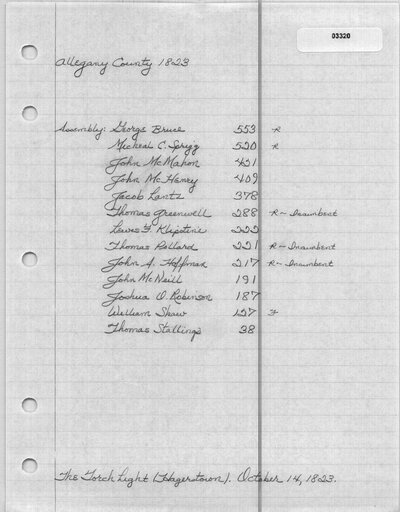 03320
Allegany County 1823
Assembly: George Bruce 553 R
Micheal C. Sprigg 520 R
John McMahon 451
John McHenry 409
Jacob Lantz 378
Thomas Greenwell 288 R - Incumbent
Lewis F. Klipstine 222
Thomas Pollard 221 R - Incumbent
John A. Hoffman 217 R - Incumbent
John McNeill 191
Joshua O. Robinson 187
William Shaw 157 F
Thomas Stallings 38
The Torch Light (Hagerstown). October 14, 1823.